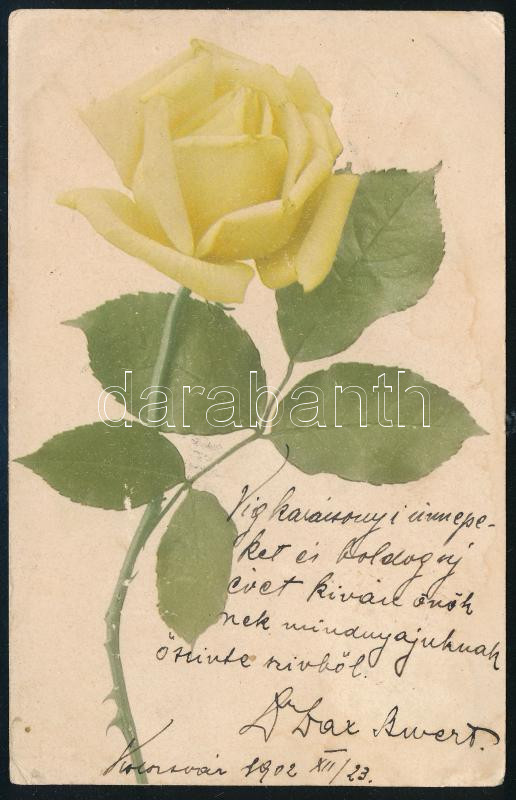 darabanth
Vig karácsonyi ünnepe-
ket és boldog uj
évet kiván önök
nek mindnyájuknak
őszinte szivből.
Dr Dax
1902 XII/23.